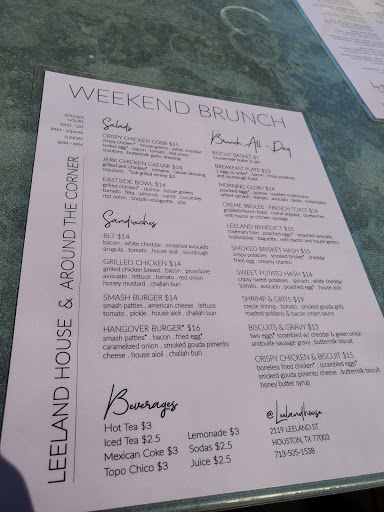 WEEKEND BRUNCH
LEELAND HOUSE & AROUND THE CORNER
KITCHEN
HOURS
WED - SAT
SUNDAY
Salads
CRISPY CHICKEN COBB $15
crispy chicken* . house greens . white cheddar
boiled egg* . bacon . tomato . red onion
croutons . buttermilk garlic dressing
JERK CHICKEN CAESAR $14
grilled jerk chicken* . romaine . caesar dressing
croutons
EASTSIDE BOWL $14
grilled chicken* . quinoa . house greens
tomato . feta . almond . carrot . cucumber
red onion
Sandwiches
BLT $14
bacon . white cheddar . smashed avocado
arugula . tomato . house aioli . sourdough
GRILLED CHICKEN $14
grilled chicken breast . bacon . provolone
avocado . lettuce . tomato . red onion
honey mustard . challah bun
SMASH BURGER $14
smash patties* . american cheese . lettuce
tomato . pickle . house aioli . challah bun
HANGOVER BURGER* $16
smash patties* . bacon . fried egg*
caramelized onion . smoked gouda pimento
cheese . house aioli . challah bun
Beverages
Hot Tea $3
Iced Tea $2.5
Mexican Coke $3
Topo Chico $3
Lemonade $3
Sodas $2.5
Juice $2.5
Brunch All - Day
BISCUIT BASKET $7
homemade butter & jam
BREAKFAST PLATE $13
2 eggs to order* . bacon . crispy potatoes
and sourdough toast
MORNING GLORY $14
CREME BRULEE FRENCH TOAST $14
griddled french toast . creme anglaise
with bacon or chicken sausage
LEELAND BENEDICT $15
rosemary ham . poached eggs* . smashed avocado
hollandaise . baguette . with bacon and house greens
SMOKED BRISKET HASH $15
crispy potatoes . smoked brisket* . cheddar
fried egg . creamy cilantro
SWEET POTATO HASH $14
crispy sweet potatoes . spinach . white cheddar
tomato . avocado . poached egg* . house aioli
SHRIMP & GRITS $19
creole shrimp . tomato . smoked gouda grits
roasted poblano & bacon cream sauce
BISCUITS & GRAVY $13
two eggs* scrambled w/ cheddar & green onion
andouille sausage gravy . buttermilk biscuits
CRISPY CHICKEN & BISCUIT $15
boneless fried chicken* . scrambled eggs*
smoked gouda pimento cheese . buttermilk biscuit
honey butter syrup
@Leelandhouse
2119 LEELAND ST
HOUSTON, TX 77003
713-505-1538